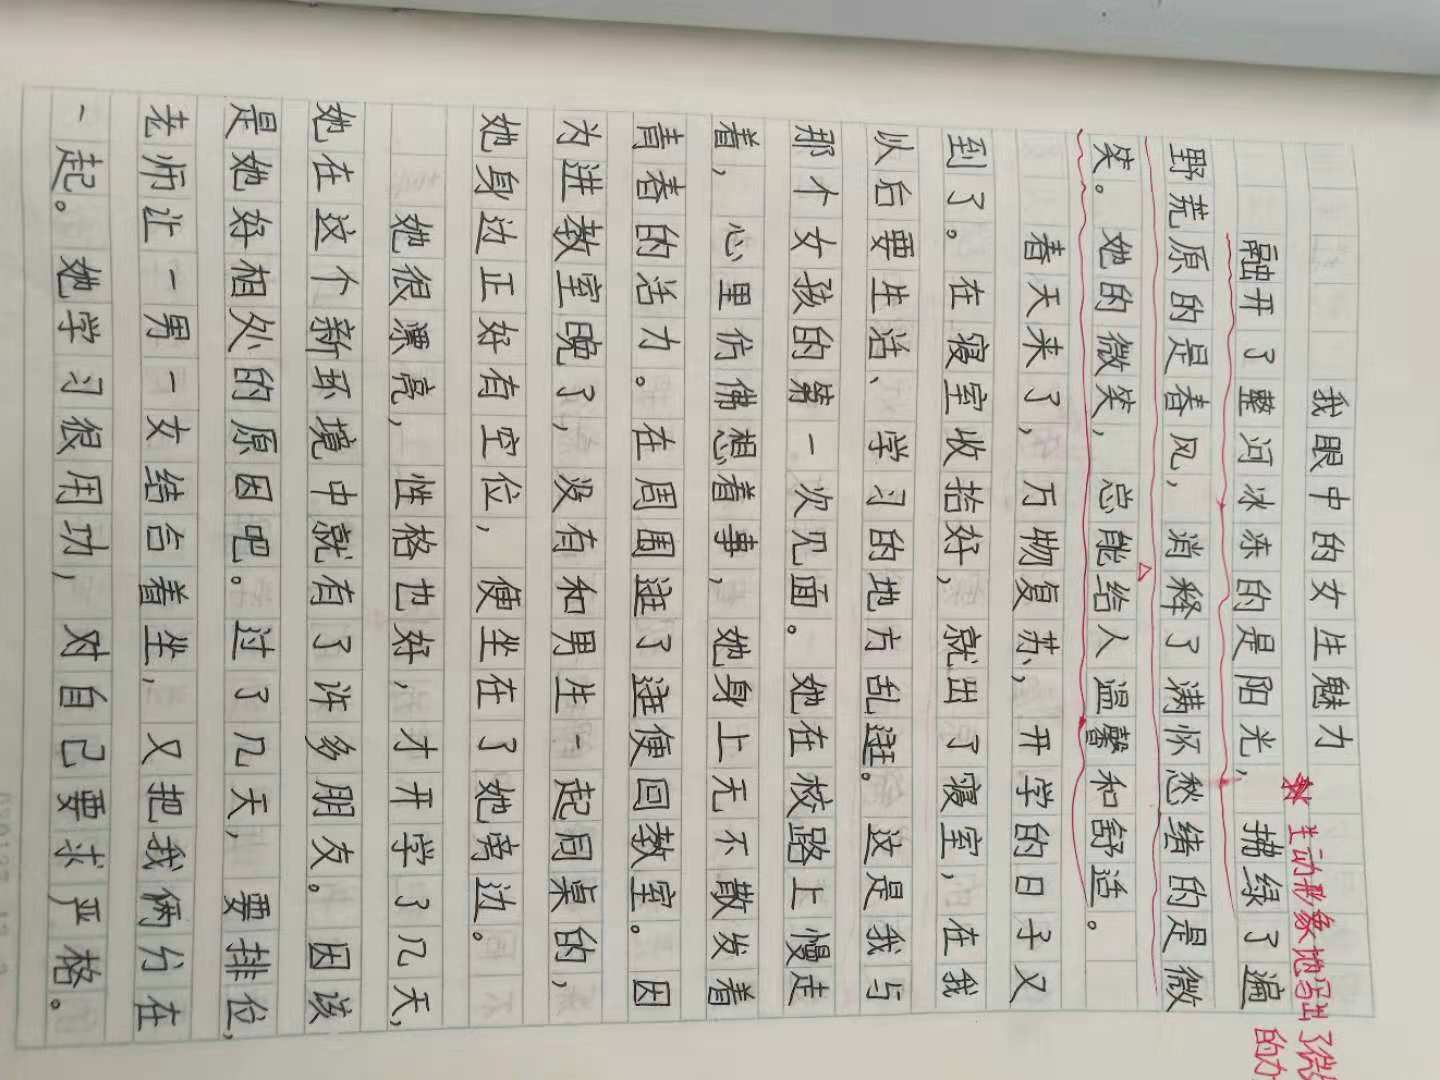 我眼中的女生魅力
融开了整河冰冻的是阳光，拂绿了遍
野荒原的是春风，消释了满怀愁绪的是微
笑。她的微笑，总能给人温馨和舒适。
春天来了，万物复苏，开学的日子又
到了。在寝室收拾好，就出了寝室，在我
以后要生活、学习的地方乱逛。这是我与
那个女孩的第一次见面。她在校路上慢走
着，心里仿佛想着事，她身上无不散发着
青春的活力。在周围逛了逛便回教室。因
为进教室晚了，没有和男生一起同桌的，
她身边正好有空位，便坐在了她旁边。
她很漂亮，性格也好，才开学了几天，
她在这个新环境中就有了许多朋友。因该
是她好相处的原因吧。过了几天，要排位，
老师让一男一女结合着坐，又把我俩分在
一起。她学习很用功，对自己要求严格。
生动形象地写出了微
的力